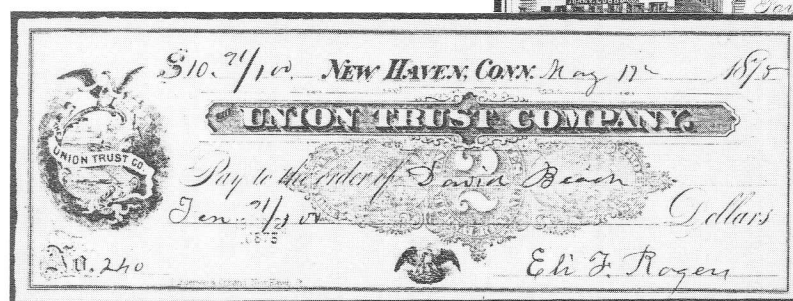 $10.71/100 NEW HAVEN, CONN. May 17 1875
UNION TRUST COMPANY.
UNION TRUST CO.
Pay to the order of David Beach
Ten 71/100 Dollars
No. 240
Eli F. Rogers